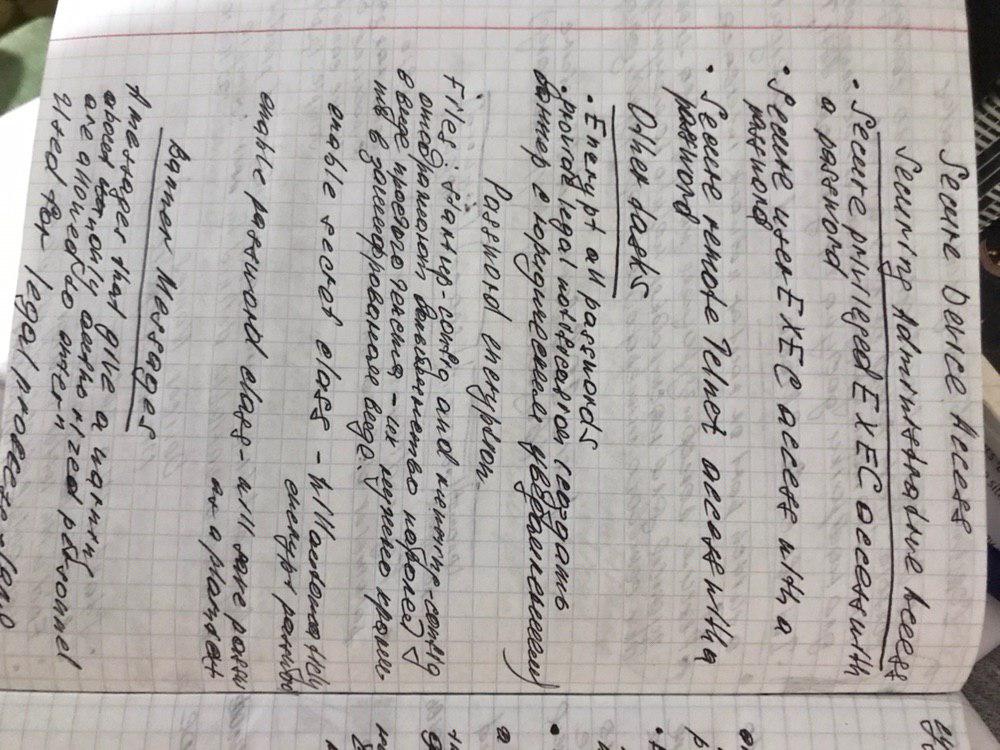 Secure Device Access
Securing Administrative Access
• Secure privileged EXEC access with
a password
• Secure user EXEC access with a
password
• Secure remote Telnet access with a
password
Other tasks
• Encrypt all passwords
• provide legal notification (создать
баннер с юридическими уведомлениями)
Password encryption
Files: startup-config and running-config
отображают большинство паролей
в виде простого текста - их нужно хранить
в зашифрованном виде.
enable secret class - will automatically
encrypt password
enable password class - will save passw
as a plaintext
Banner Messages
A messages that give a warning
about
are allowed to enter
Used for legal